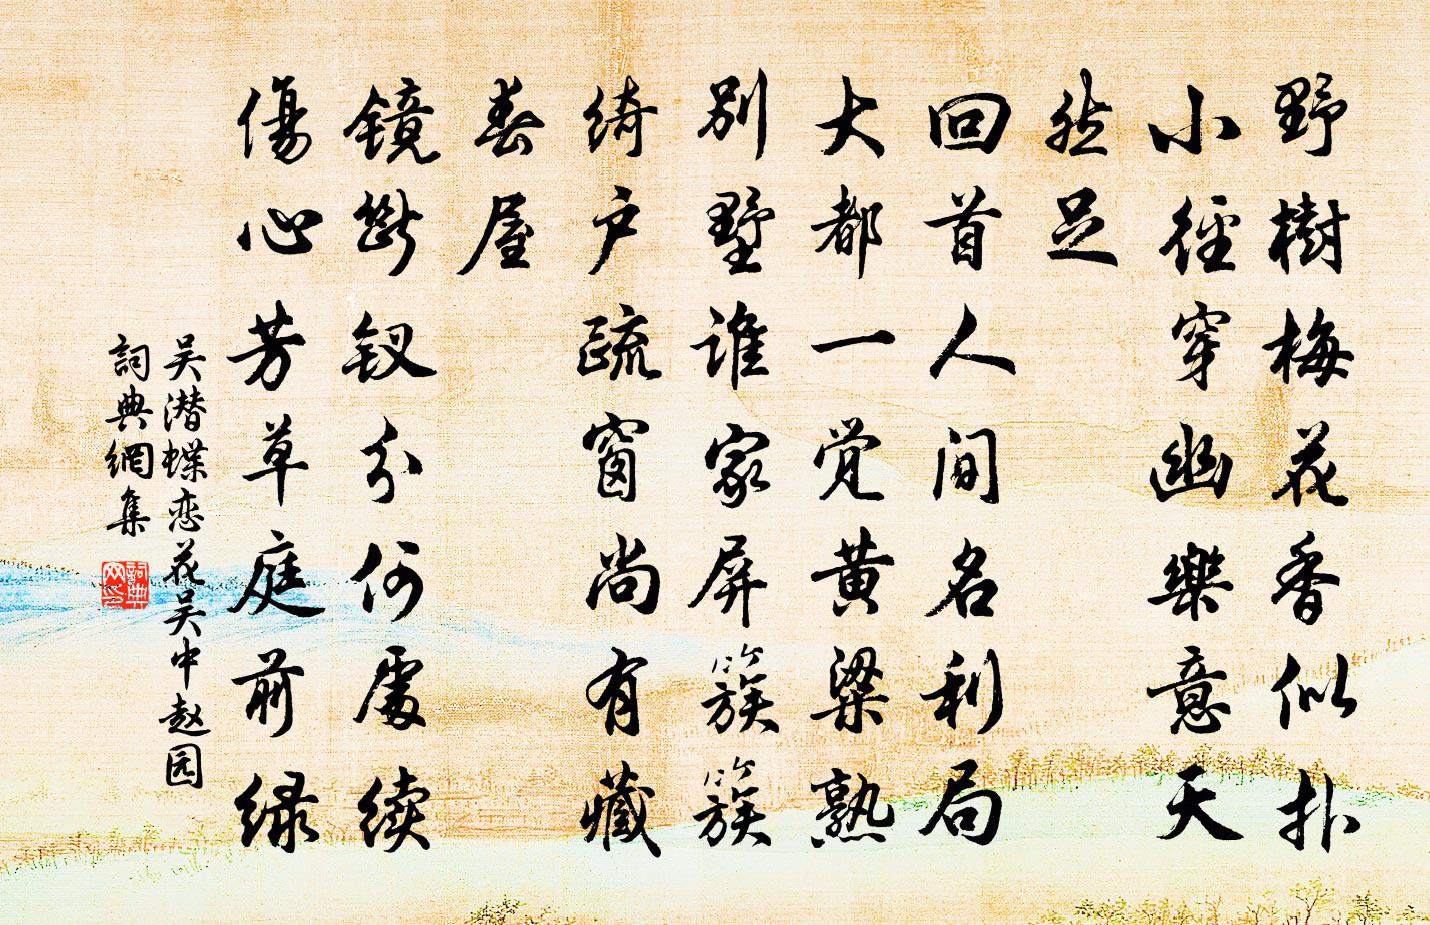 野樹梅花香似扑
小徑穿幽樂意天
然足
回首人间名利局
大都一觉黄粱熟
别墅谁家屏簇簇
绮户疏窗尚有藏
春屋
镜断钗分何處续
傷心芳草庭前绿
吴潜蝶恋花吴中赵园
詞典網集
詞典
网印